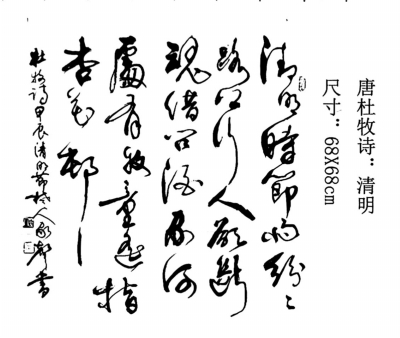 唐杜牧诗：清明
尺寸：68X68cm
清明時節雨紛〻
路上行人欲斷
魂借问酒家何
處有牧童遥指
杏花邨
杜牧诗甲辰清明節於人書